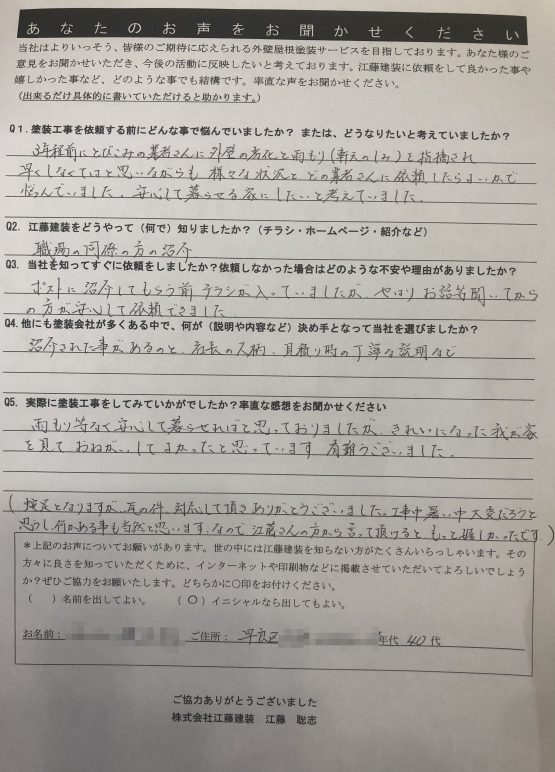 あなたのお声をお聞かせください
当社はよりいっそう、皆様のご期待に応えられる外壁屋根塗装サービスを目指しております。あなた様のご
意見をお聞かせいただき、今後の活動に反映したいと考えております。江藤建装に依頼をして良かった事や
嬉しかった事など、どのような事でも結構です。率直な声をお聞かせください。
（出来るだけ具体的に書いていただけると助かります。）
Q1.塗装工事を依頼する前にどんな事で悩んでいましたか？ または、どうなりたいと考えていましたか？
前にとびこみの業者さんに外壁の劣化と雨もり(軒天のしみ)を指摘され
早くしなくてはと思いながらも 様々な状況と どの業者さんに依頼したらよいかで
悩んでいました。安心して暮らせる家にしたいと考えていました。
Q2. 江藤建装をどうやって（何で）知りましたか？（チラシ・ホームページ・紹介など）
職場の同僚の方の紹介
Q3. 当社を知ってすぐに依頼をしましたか？依頼しなかった場合はどのような不安や理由がありましたか？
ポストに紹介してもらう前 チラシが入っていましたが、やはり お話等聞いてから
の方が安心して依頼できました。
Q4.他にも塗装会社が多くある中で、何が（説明や内容など）決め手となって当社を選びましたか？
紹介された事があるのと、店長の人柄、見積り時の丁寧な説明など
Q5. 実際に塗装工事をしてみていかがでしたか？率直な感想をお聞かせください
雨もり等なく安心して暮らせればと思っておりましたが、きれいになった我が家
を見て おねがいしてよかったと思っています。有難うございました。
(捕足となりますが、瓦の件、対応して頂きありがとうございました。工事中暑い中大変だろうと
思うし何かある事も当然と思います。なので、江藤さんの方から言って頂けると もっと嬉しかったです。)
＊上記のお声についてお願いがあります。世の中には江藤建装を知らない方がたくさんいらっしゃいます。その
方々に良さを知っていただくために、インターネットや印刷物などに掲載させていただいてよろしいでしょう
か？ぜひご協力をお願いします。どちらかに〇印をお付けください。
（　）名前を出してよい。 （〇）イニシャルなら出してもよい。
お名前： ご住所：早良区 年代 40代
ご協力ありがとうございました
株式会社江藤建装 江藤 聡志